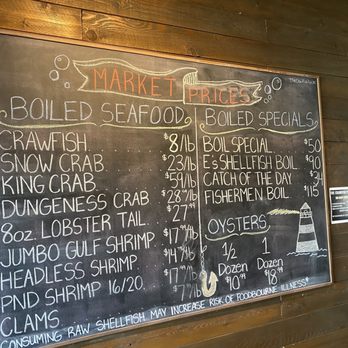 MARKET PRICES
BOILED SEAFOOD
CRAWFISH $8/lb
SNOW CRAB $23/lb
KING CRAB $59/lb
DUNGENESS CRAB $28.99/lb
8oz. LOBSTER TAIL $27.99
JUMBO GULF SHRIMP $17.99/lb
HEADLESS SHRIMP $14.99/lb
PND SHRIMP 16/20 $17.99/lb
CLAMS $7/lb
BOILED SPECIALS
BOIL SPECIAL $50
E's SHELLFISH BOIL $90
CATCH OF THE DAY
FISHERMEN BOIL $115
OYSTERS
1/2 Dozen $10.99
1 Dozen $18.99
CONSUMING RAW SHELLFISH MAY INCREASE RISK OF FOODBOURNE ILLNESS*